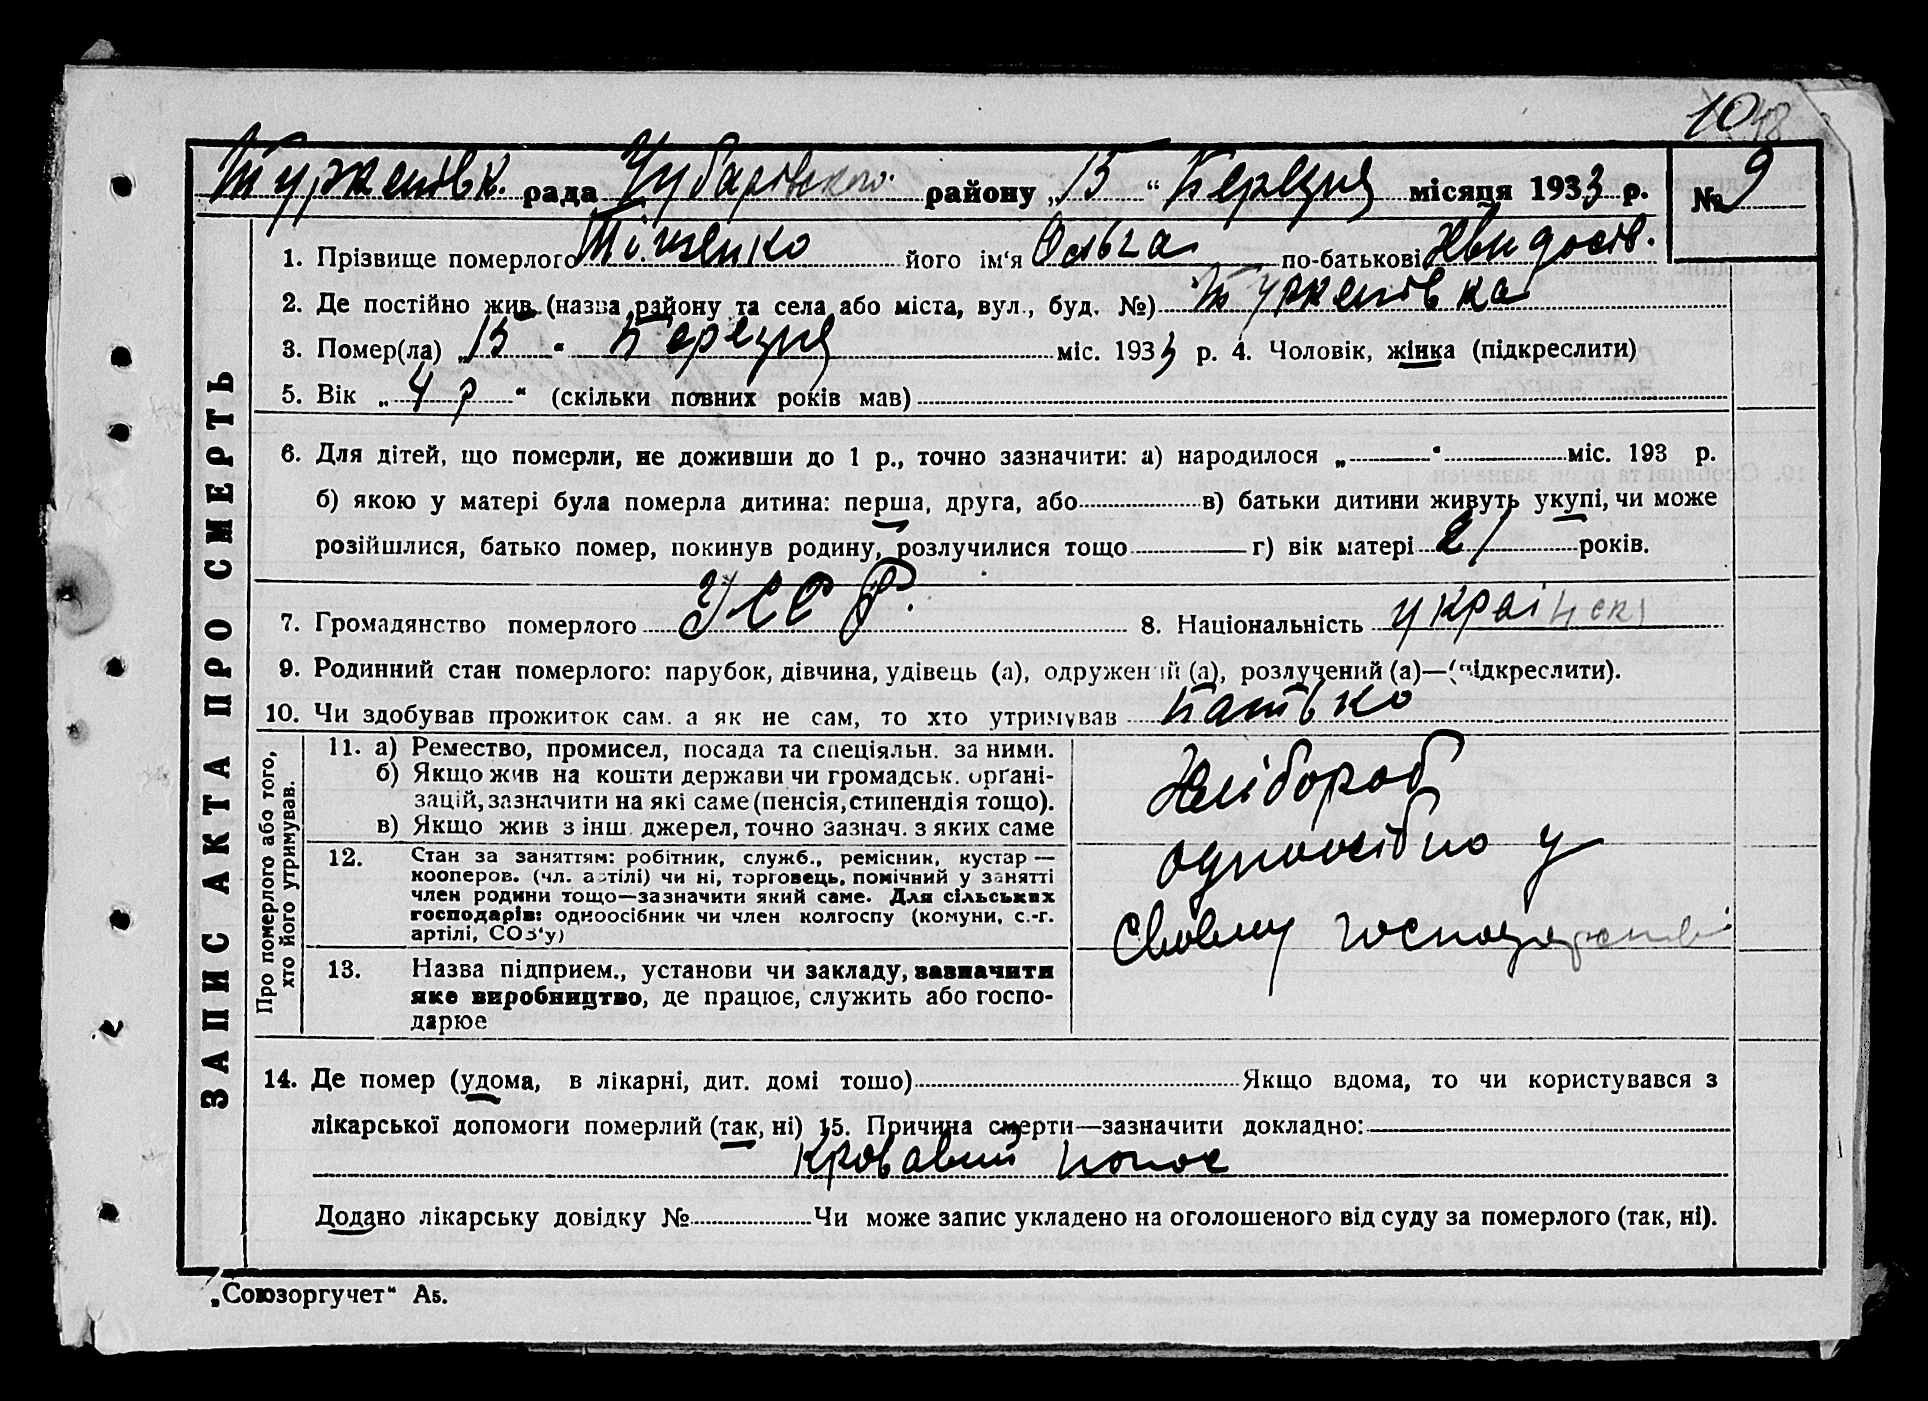 10
Туркенівк. рада Чубарівського району „15“ Березня місяця 1933 р. № 9
ЗАПИС АКТА ПРО СМЕРТЬ
1. Прізвище померлого Тішенко його ім'я Ольга по-батькові
2. Де постійно жив (назва району та села або міста, вул., буд. №) Туркенівка
3. Помер(ла) „15“ Березня міс. 1933 р. 4. Чоловік, жінка (підкреслити)
5. Вік „4 р“ (скільки повних років мав)
6. Для дітей, що померли, не доживши до 1 р., точно зазначити: а) народилося „ “ міс. 193 р.
б) якою у матері була померла дитина: перша, друга, або в) батьки дитини живуть укупі, чи може
розійшлися, батько помер, покинув родину, розлучилися тощо г) вік матері 21 років.
7. Громадянство померлого УССР. 8. Національність українск
9. Родинний стан померлого: парубок, дівчина, удівець (а), одружений (а), розлучений (а)—(підкреслити).
10. Чи здобував прожиток сам, а як не сам, то хто утримував Батько
Про померлого або того,
хто його утримував.
11. а) Ремество, промисел, посада та спеціяльн. за ними.
б) Якщо жив на кошти держави чи громадськ. орґані-
зацій, зазначити на які саме (пенсія, стипендія тощо).
в) Якщо жив з інш. джерел, точно зазнач. з яких саме
Хлібороб
12. Стан за заняттям: робітник, служб., ремісник, кустар —
кооперов. (чл. артілі) чи ні, торговець, помічний у занятті
член родини тощо—зазначити який саме. Для сільських
господарів: одноосібник чи член колгоспу (комуни, с.-г.
артілі, СОЗ'у)
одноосібно у
своему господарстві
13. Назва підприєм., установи чи закладу, зазначити
яке виробництво, де працює, служить або госпо-
дарює
14. Де помер (удома, в лікарні, дит. домі тощо) Якщо вдома, то чи користувався з
лікарської допомоги померлий (так, ні) 15. Причина смерти—зазначити докладно:
Кровавий понос
Додано лікарську довідку № Чи може запис укладено на оголошеного від суду за померлого (так, ні).
„Союзоргучет“ А5.